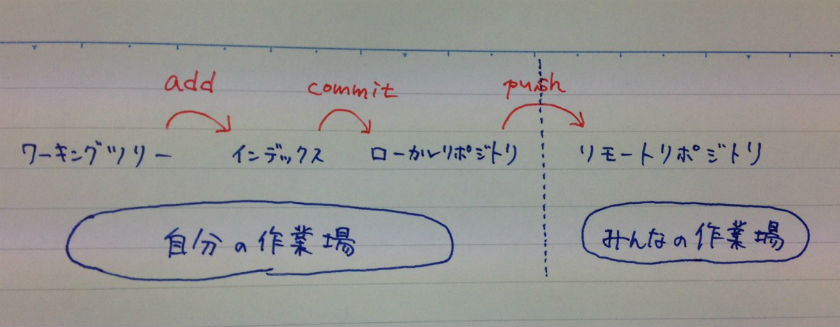 add commit push
ワーキングツリー インデックス ローカルリポジトリ リモートリポジトリ
自分の作業場 みんなの作業場